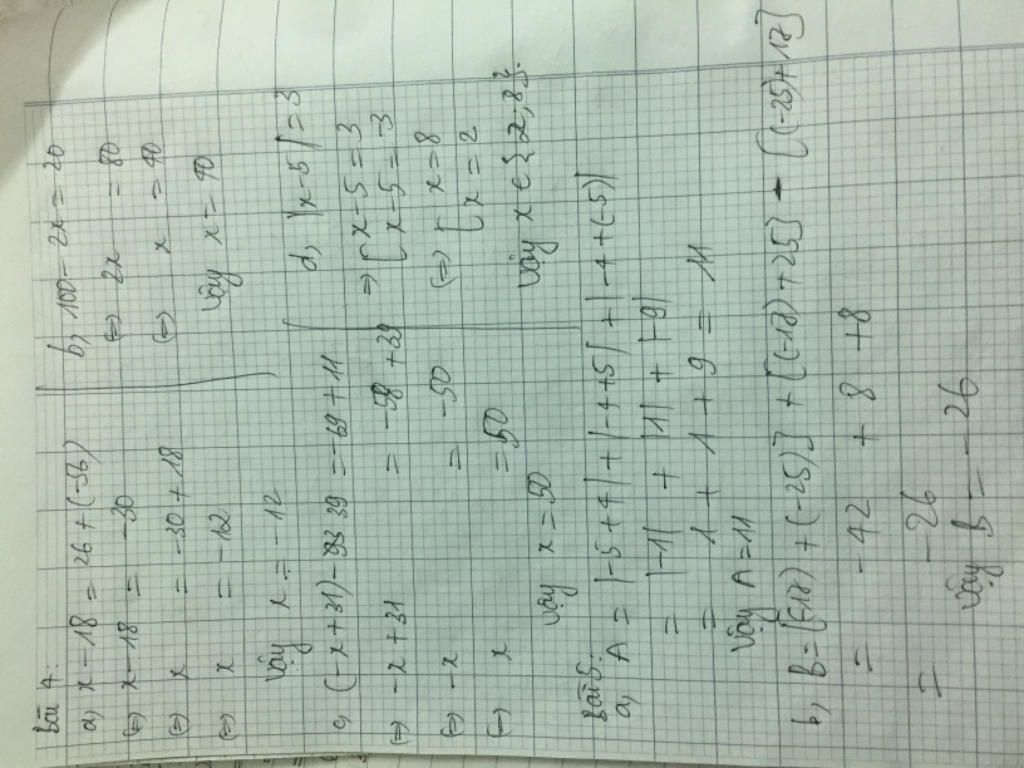 Bài 4:
a, x - 18 = 26 + (-56)
(=) x - 18 = -30
(=) x = -30 + 18
(=) x = -12
Vậy x = -12
b, 100 - 2x = 20
(=) 2x = 80
(=) x = 40
Vậy x = 40
c, (-x + 31) - 39 = -69 + 11
(=) -x + 31 = -58 + 39
(=) -x = -50
(=) x = 50
Vậy x = 50
d, |x - 5| = 3
=> [ x - 5 = 3
[ x - 5 = -3
(=) [ x = 8
[ x = 2
Vậy x ∈ {2, 8}.
Bài 5:
a, A = |-5 + 4| + |-4 + 5| + |-4 + (-5)|
= |-1| + |1| + |-9|
= 1 + 1 + 9 = 11
Vậy A = 11
b, B = [(-17) + (-25)] + [(-17) + 25] - [(-25) + 17]
= -42 + 8 + 8
= -26
Vậy B = -26